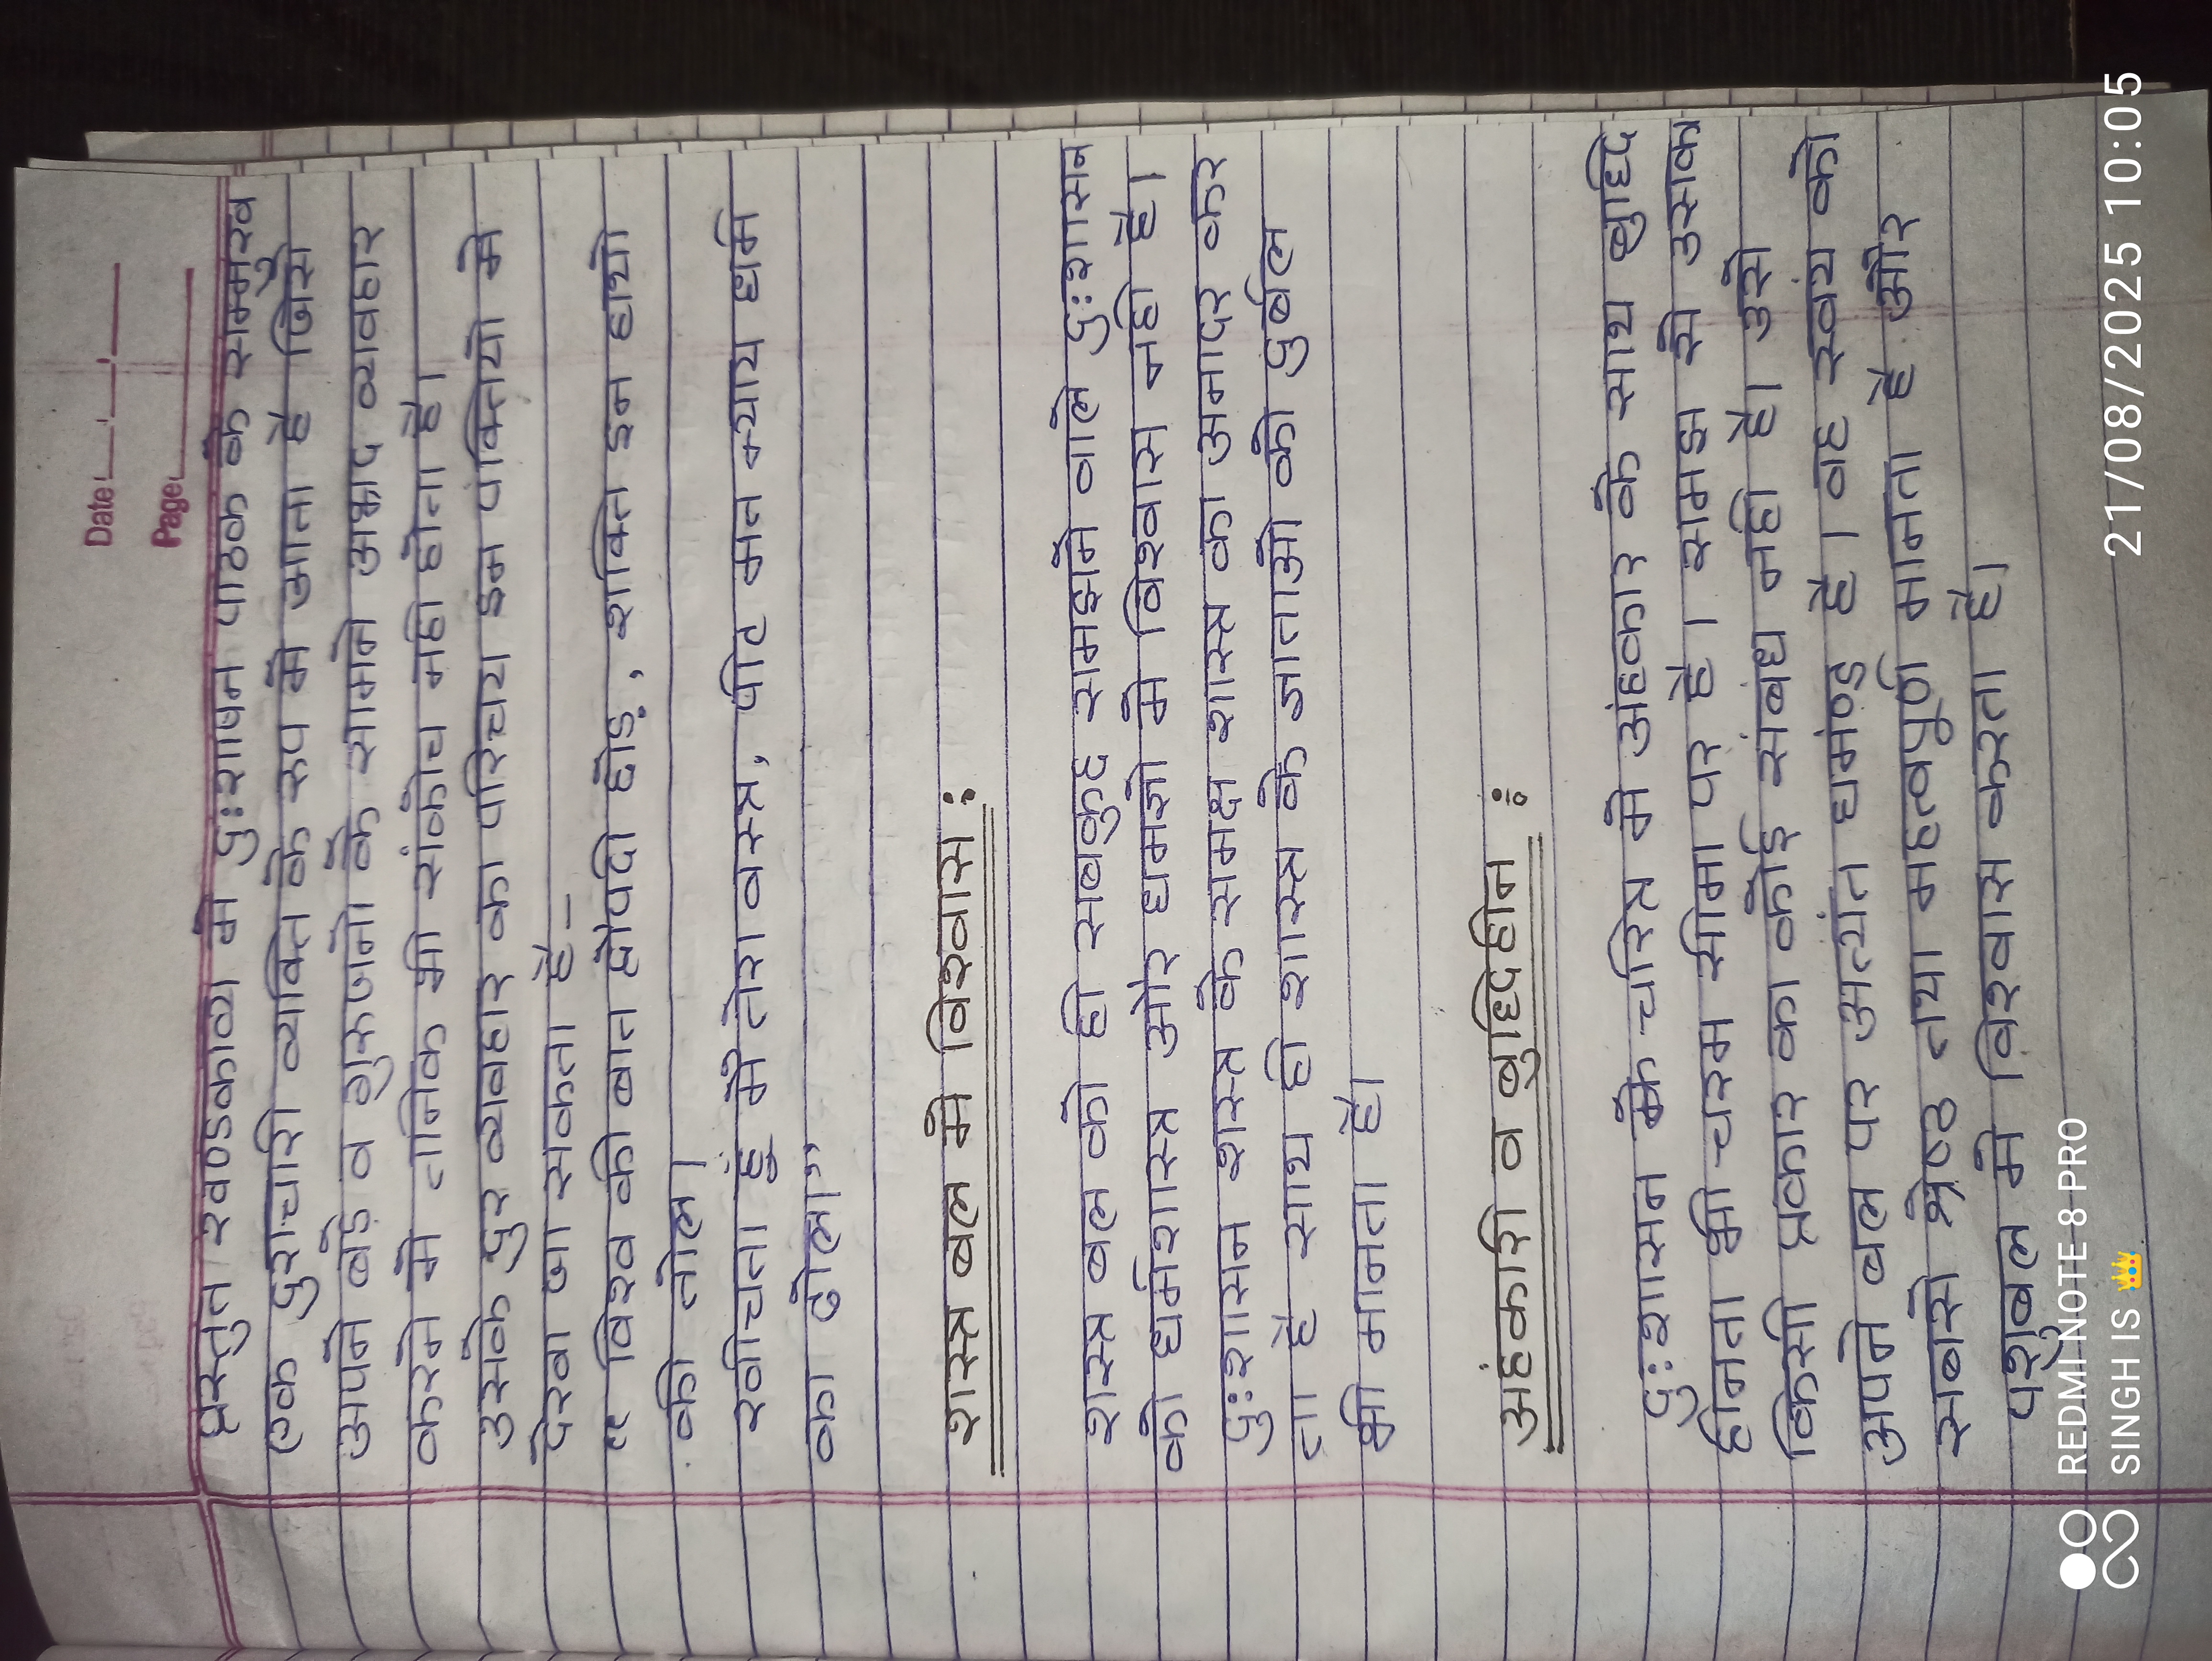 Date
Page
प्रस्तुत खण्डकाव्य मे दुःशाषन पाठक के सम्मुख
एक दुराचारी व्यक्ति के रूप मे आता है जिसे
अपने बड़े व गुरुजनो के सामने अभद्र व्यवहार
करने मे तनिक भी संकोच नही होता है।
उसके दुर व्यवहार का परिचय इन पंक्तियो मे
देखा जा सकता है-
" विश्व की बात द्रोपदी छोड़, शक्ति इन हाथो
की तोल।
खीचता हूं मै तेरा वस्त्र, पीट मत न्याय धर्म
का ढोल।"
शस्त्र बल मे विश्वास :
शस्त्र बल को ही सबकुछ समझने वाले दुःशासन
को धर्मशास्त्र ओर धर्मज्ञो मे विश्वास नही है।
दुःशासन शस्त्र के समक्ष शास्त्र का अनादर कर
ता है साथ ही शास्त्र के ज्ञाताओ को दुर्बल
भी मानता है।
अहंकारी व बुद्धिहीन :
दुःशासन के चरित्र मे अहंकार के साथ बुद्धि
हीनता भी चरम सीमा पर है। समझ से उसका
किसी प्रकार का कोई संबंध नही है। उसे
अपने बल पर अत्यंत घमण्ड है। वह स्वयं को
सबसे श्रेष्ठ तथा महत्वपूर्ण मानता है और
पशुबल मे विश्वास करता है।
REDMI NOTE 8 PRO
SINGH IS 👑
21/08/2025 10:05